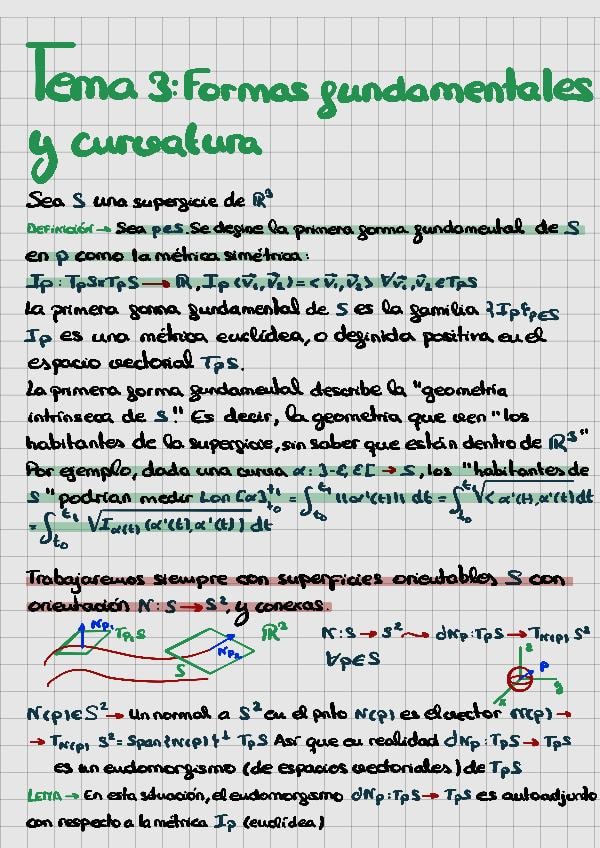 Tema 3: Formas fundamentales
y curvatura
Sea S una superficie de ℝ³
DEFINICIÓN → Sea p∈S. Se define la primera forma fundamental de S
en p como la métrica simétrica:
Ip : TpS×TpS → ℝ, Ip (v⃗₁, v⃗₂) = <v⃗₁, v⃗₂> ∀v⃗₁, v⃗₂ ∈ TpS
La primera forma fundamental de S es la familia {Ip}p∈S
Ip es una métrica euclídea, o definida positiva en el
espacio vectorial TpS.
La primera forma fundamental describe la "geometría
intrínseca de S". Es decir, la geometría que ven "los
habitantes de la superficie, sin saber que están dentro de ℝ³"
Por ejemplo, dada una curva α: ]-ε, ε[ → S, los "habitantes de
S" podrían medir Lon [α]ₜ₀ᵗ¹ = ∫ₜ₀ᵗ¹ ||α'(t)|| dt = ∫ₜ₀ᵗ¹ √<α'(t), α'(t)> dt
= ∫ₜ₀ᵗ¹ √Iα(t) (α'(t), α'(t)) dt
Trabajaremos siempre con superficies orientables S con
orientación N: S → S², y conexas.
Np₁ Tp₁S S Np₂ ℝ²
N: S → S² ⇝ dNp: TpS → TN(p) S²
∀p∈S
z p y x
N(p)∈S² → Un normal a S² en el pnto N(p) es el vector N(p) →
→ TN(p) S² = Span{N(p)}⊥ TpS Así que en realidad dNp: TpS → TpS
es un endomorfismo (de espacios vectoriales) de TpS
LEMA → En esta situación, el endomorfismo dNp: TpS → TpS es autoadjunto
con respecto a la métrica Ip (euclídea)